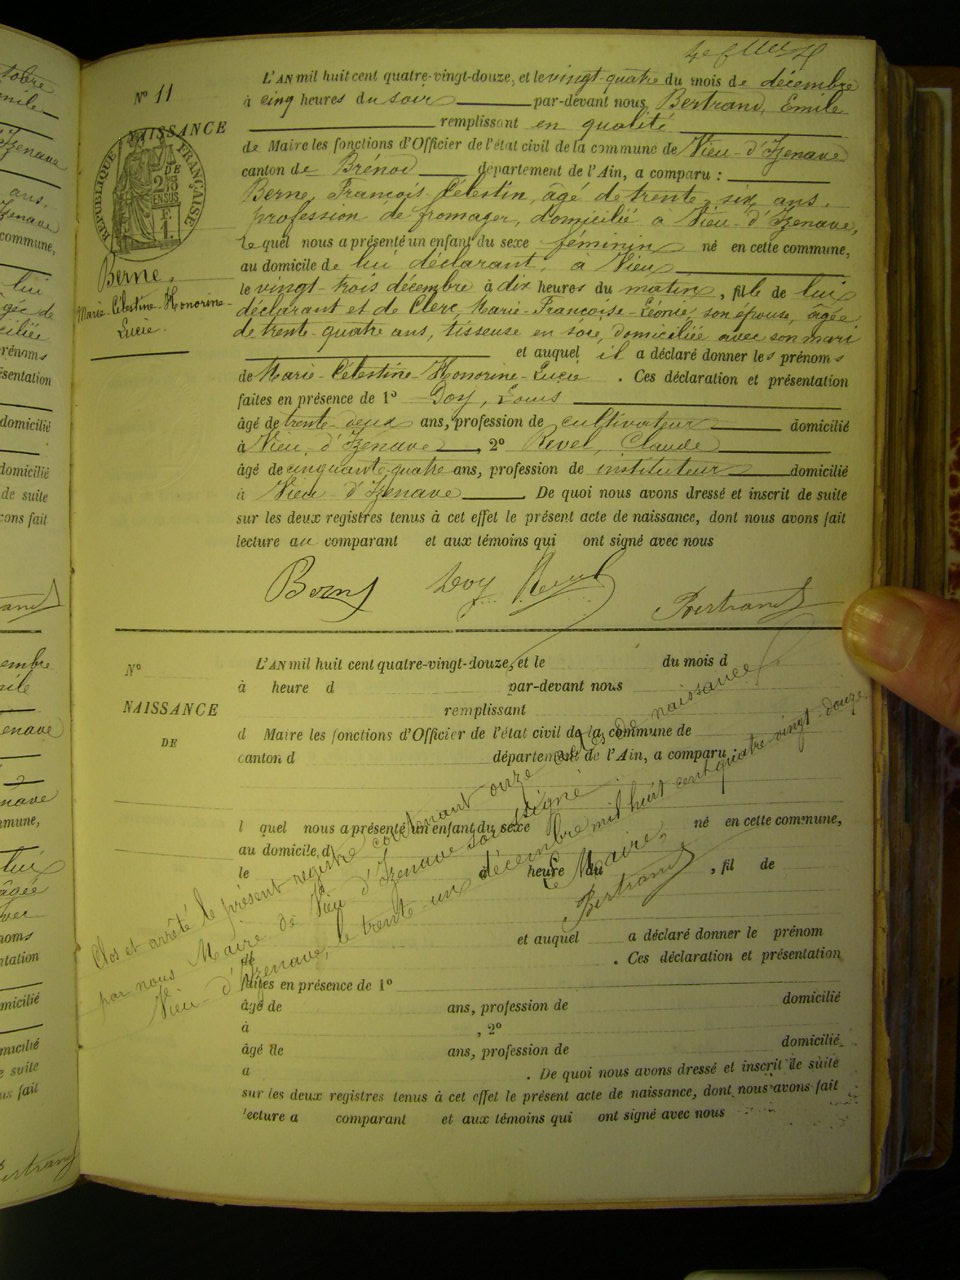 L'AN mil huit cent quatre-vingt-douze, et le vingt-quatre du mois de décembre
N° 11
à cinq heures du soir par-devant nous, Bertrand, Emile
remplissant en qualité
NAISSANCE
DE
RÉPUBLIQUE FRANÇAISE
de Maire les fonctions d'Officier de l'état civil de la commune de Vieu-d'Izenave
canton de Brénod département de l'Ain, a comparu :
Berne, François-Célestin, âgé de trente-six ans,
profession de fromager, domicilié à Vieu-d'Izenave,
Lequel nous a présenté un enfant du sexe féminin né en cette commune,
au domicile de lui déclarant, à Vieu
Berne,
Marie-Célestine-Honorine-
Lucie.
le vingt-trois décembre à dix heures du matin, fille de lui
déclarant et de Clerc, Marie-Françoise-Léonie, son épouse, âgée
de trente-quatre ans, tisseuse en soie, domiciliée avec son mari
et auquel il a déclaré donner les prénoms
de Marie-Célestine-Honorine-Lucie . Ces déclaration et présentation
faites en présence de 1° Doy, Louis
âgé de trente-deux ans, profession de cultivateur domicilié
à Vieu-d'Izenave, 2° Revel, Claude
âgé de cinquante-quatre ans, profession de instituteur domicilié
à Vieu-d'Izenave. De quoi nous avons dressé et inscrit de suite
sur les deux registres tenus à cet effet le présent acte de naissance, dont nous avons fait
lecture au comparant et aux témoins qui ont signé avec nous
Berne Doy Revel Bertrand
N° L'AN mil huit cent quatre-vingt-douze, et le du mois d
à heure d par-devant nous
NAISSANCE remplissant
DE
d Maire les fonctions d'Officier de l'état civil de la commune de
canton d département de l'Ain, a comparu :
l quel nous a présenté un enfant du sexe né en cette commune,
au domicile d
le à heure du , fil de
et auquel a déclaré donner le prénom
de . Ces déclaration et présentation
faites en présence de 1°
âgé de ans, profession de domicilié
à , 2°
âgé de ans, profession de domicilié
à . De quoi nous avons dressé et inscrit de suite
sur les deux registres tenus à cet effet le présent acte de naissance, dont nous avons fait
lecture a comparant et aux témoins qui ont signé avec nous
Clos et arrêté le présent registre contenant onze actes de naissance
par nous Maire de Vieu-d'Izenave soussigné
Vieu-d'Izenave, le trente-un décembre mil huit cent quatre-vingt-douze.
Le Maire,
Bertrand